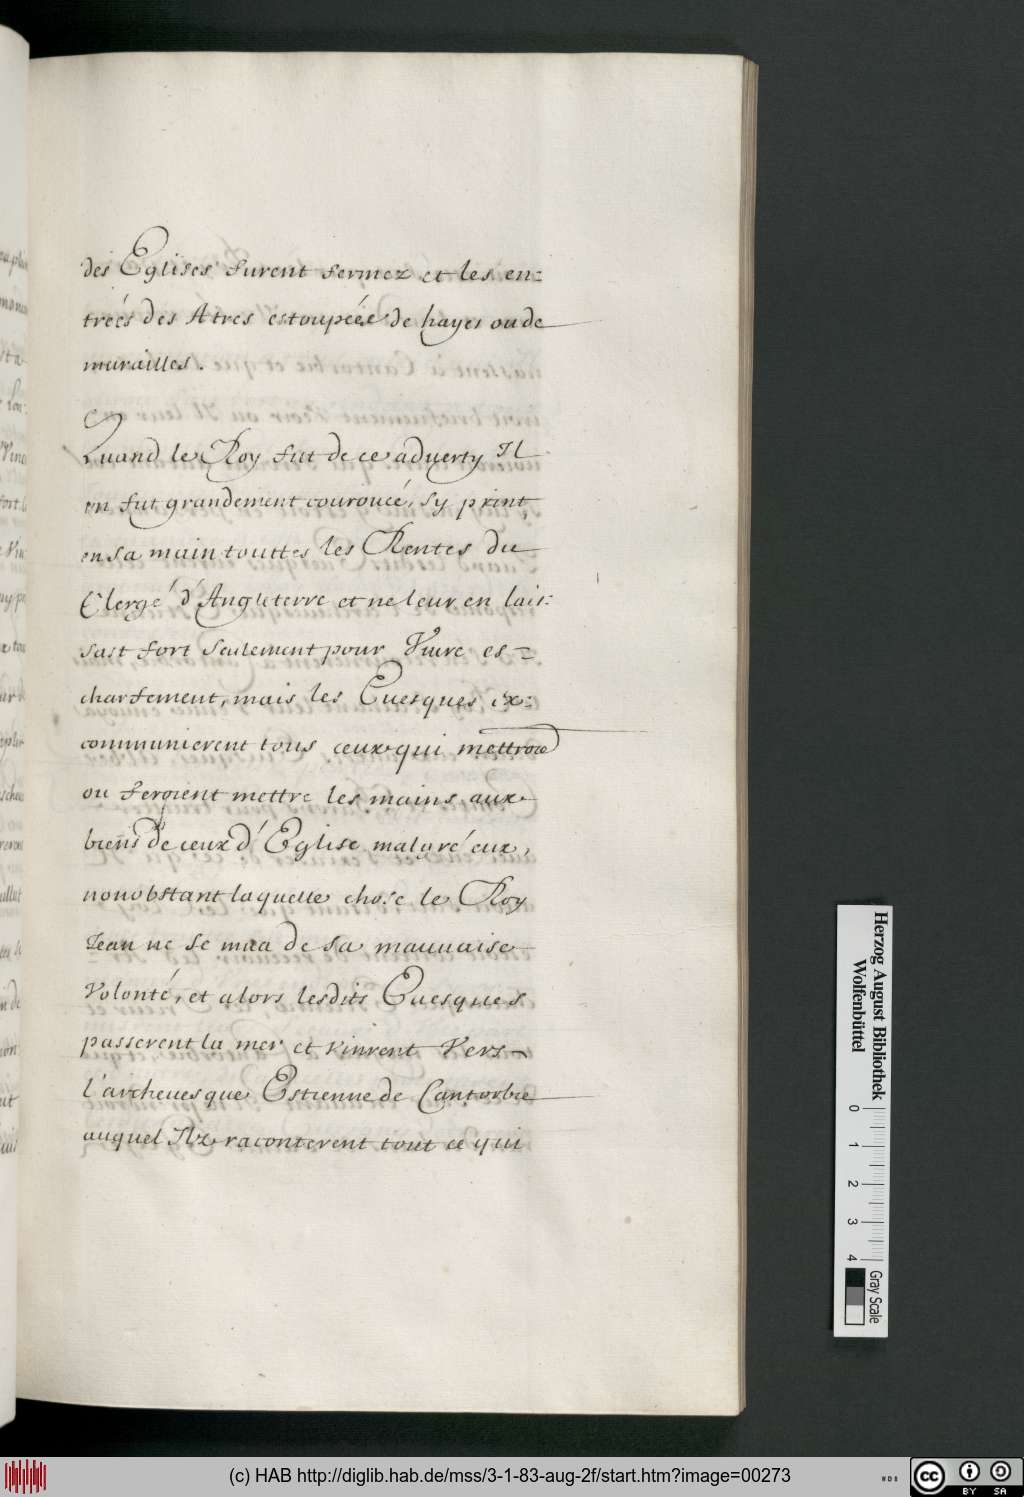 des Eglises furent fermez et les en=
treés des Atres estoupéés de hayes ou de
murailles.
Quand le Roy fut de ce aduerty Il
en fut grandement couroucé, sy print
en sa main touttes les Rentes du
Clergé d'Angleterre et ne leur en lais=
sast fort seulement pour Viure es=
charsement, mais les Euesques ex=
communierent tous ceux qui mettroie
ou feroient mettre les mains aux
biens de ceux d'Eglise malgré eux,
nonobstant laquelle chose le Roy
Jean ne se mua de sa mauuaise
Volonté, et alors lesdits Euesques
passerent la mer et vinrent Vers
l'archeuesque Estienne de Cantorbie
auquel Ilz raconterent tout ce qui
Herzog August Bibliothek
Wolfenbüttel
0 1 2 3 4
Gray Scale
(c) HAB http://diglib.hab.de/mss/3-1-83-aug-2f/start.htm?image=00273
cc BY SA